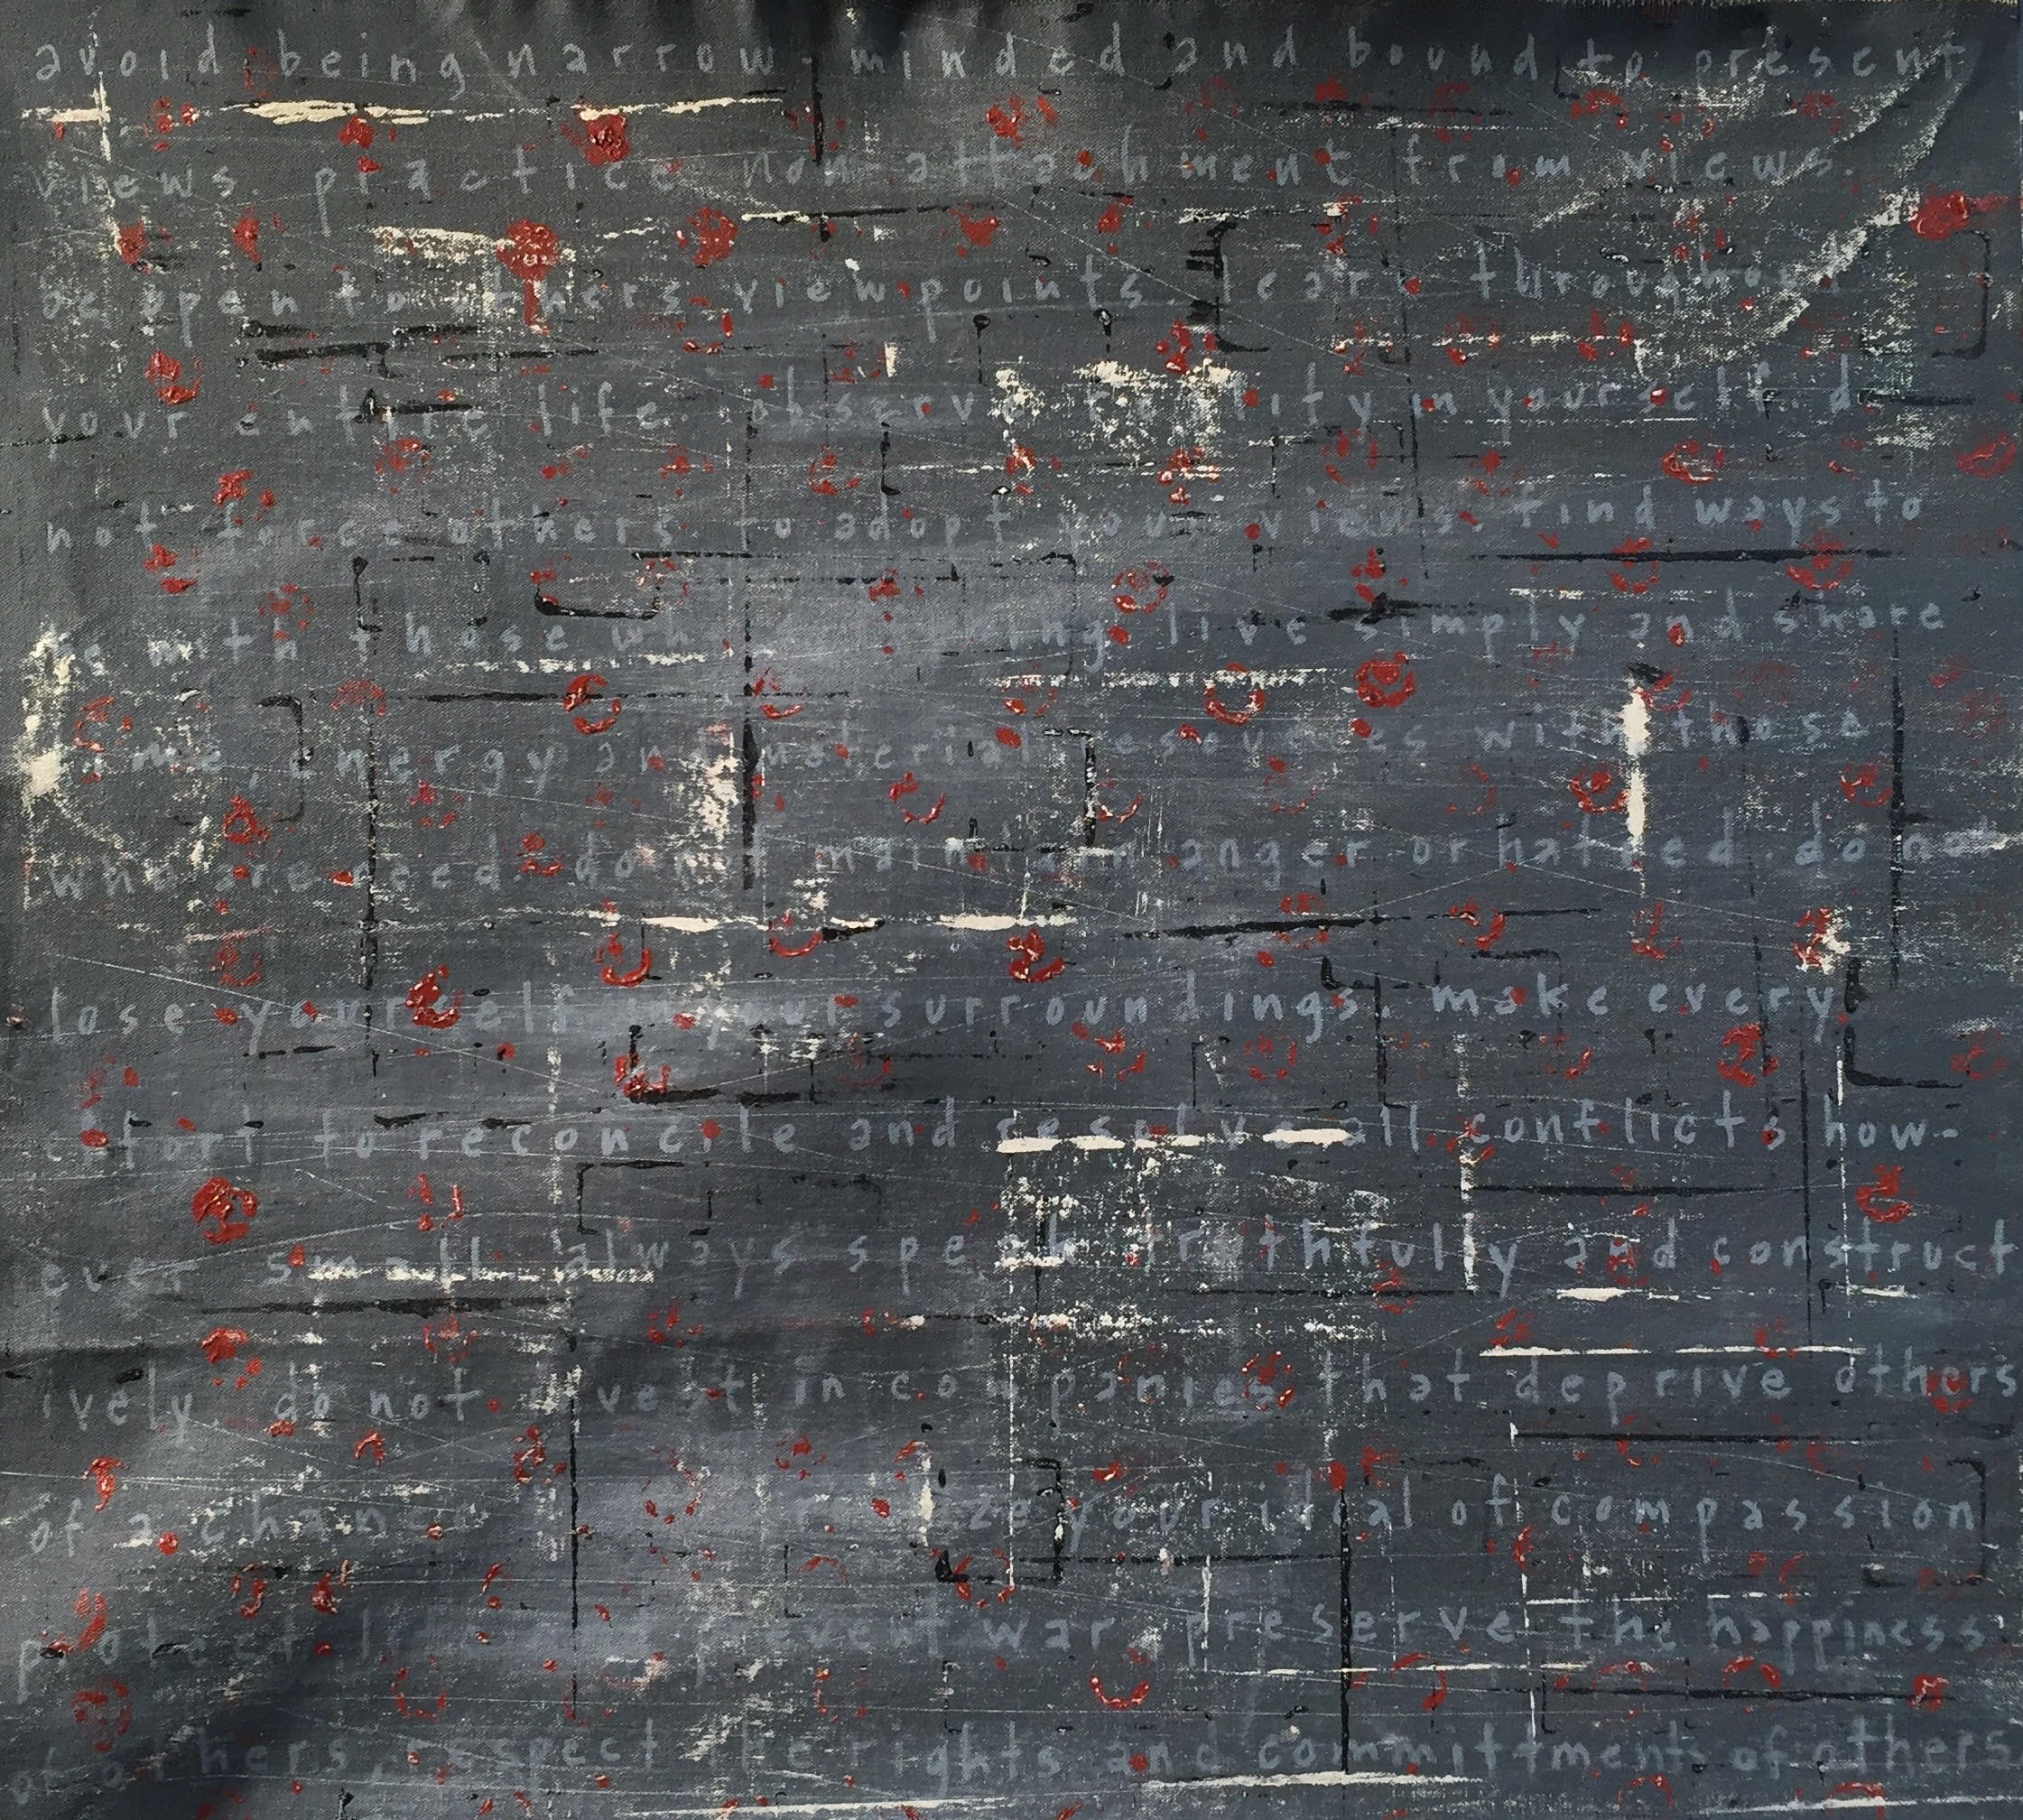 avoid being narrow-minded and bound to present
views. practice non attachment from views.
be open to others viewpoints. learn throughout
your entire life. observe reality in yourself. do
not force others to adopt your views. find ways to
be with those live simply and share
time, energy and material resources with those
who are need do not maintain anger or hatred. do not
lose yourself in your surroundings. make every
effort to reconcile and resolve all conflicts how-
ever small. always speak truthfully and construct
ively. do not invest in companies that deprive others
of a chance realize your ideal of compassion
protect prevent war. preserve the happiness
of others, respect the rights and committments of others